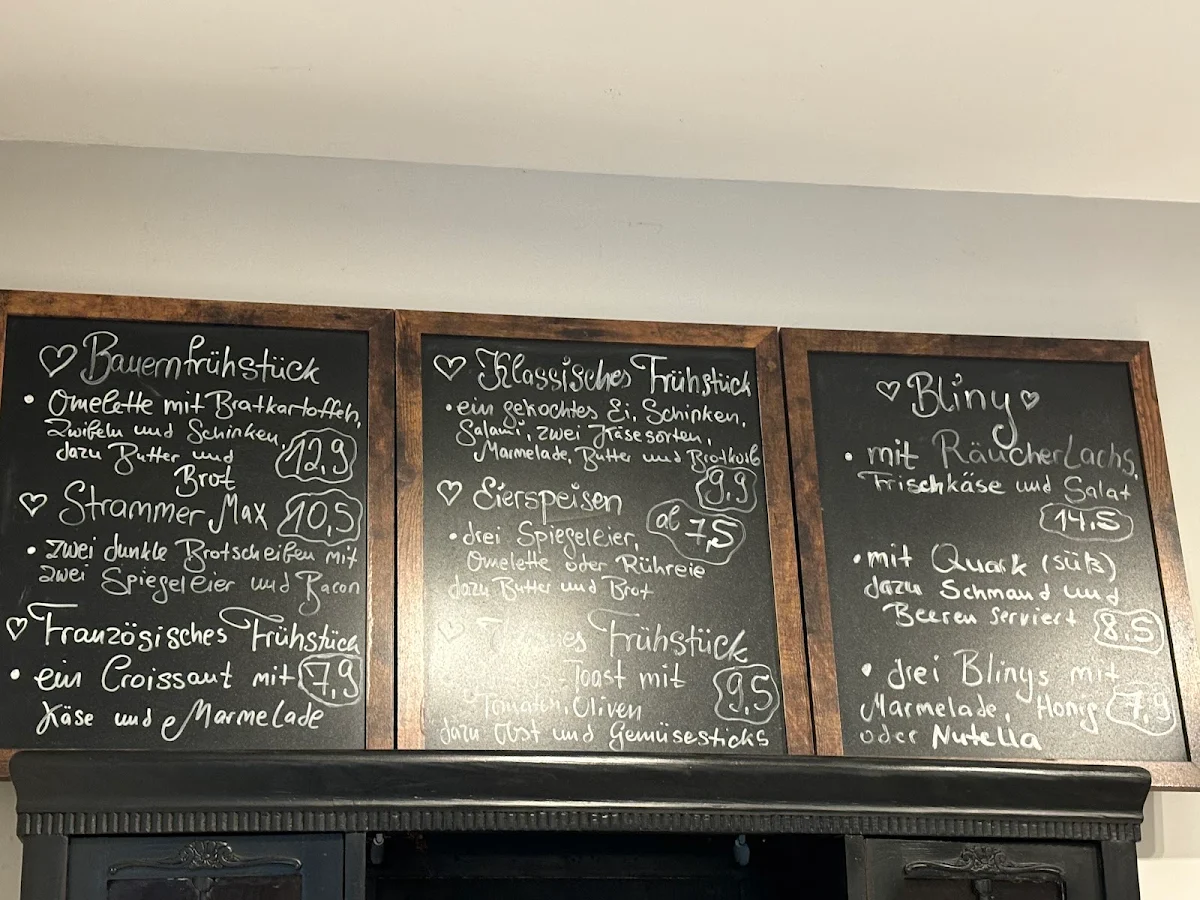 Bauernfrühstück
• Omelette mit Bratkartoffeln,
Zwibeln und Schinken,
dazu Butter und
Brot
12,9
Strammer Max
10,5
• zwei dunkle Brotscheiben mit
zwei Spiegeleier und Bacon
Französisches Frühstück
• ein Croissant mit
7,9
Käse und Marmelade
Klassisches Frühstück
• ein gekochtes Ei, Schinken,
Salami, zwei Käsesorten,
Marmelade, Butter und Brotkorb
9,9
Eierspeisen
ab 7,5
• drei Spiegeleier,
Omelette oder Rühreie
dazu Butter und Brot
Frühstück
Toast mit
9,5
Tomaten, Oliven
dazu Obst und Gemüsesticks
Bliny
• mit Räucherlachs,
Frischkäse und Salat
14,5
• mit Quark (süß)
dazu Schmand und
Beeren serviert
8,5
• drei Blinys mit
Marmelade, Honig
7,9
oder Nutella